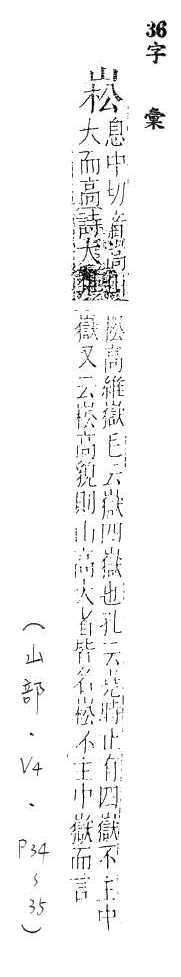 36字 彙
崧
息中切音嵩山
大而高詩大雅
崧高維嶽毛云嶽四嶽也孔云堯時止有四嶽不主中
嶽又云崧高貌則山高大者皆名崧不主中嶽而言
(山部.V4.P34~35)